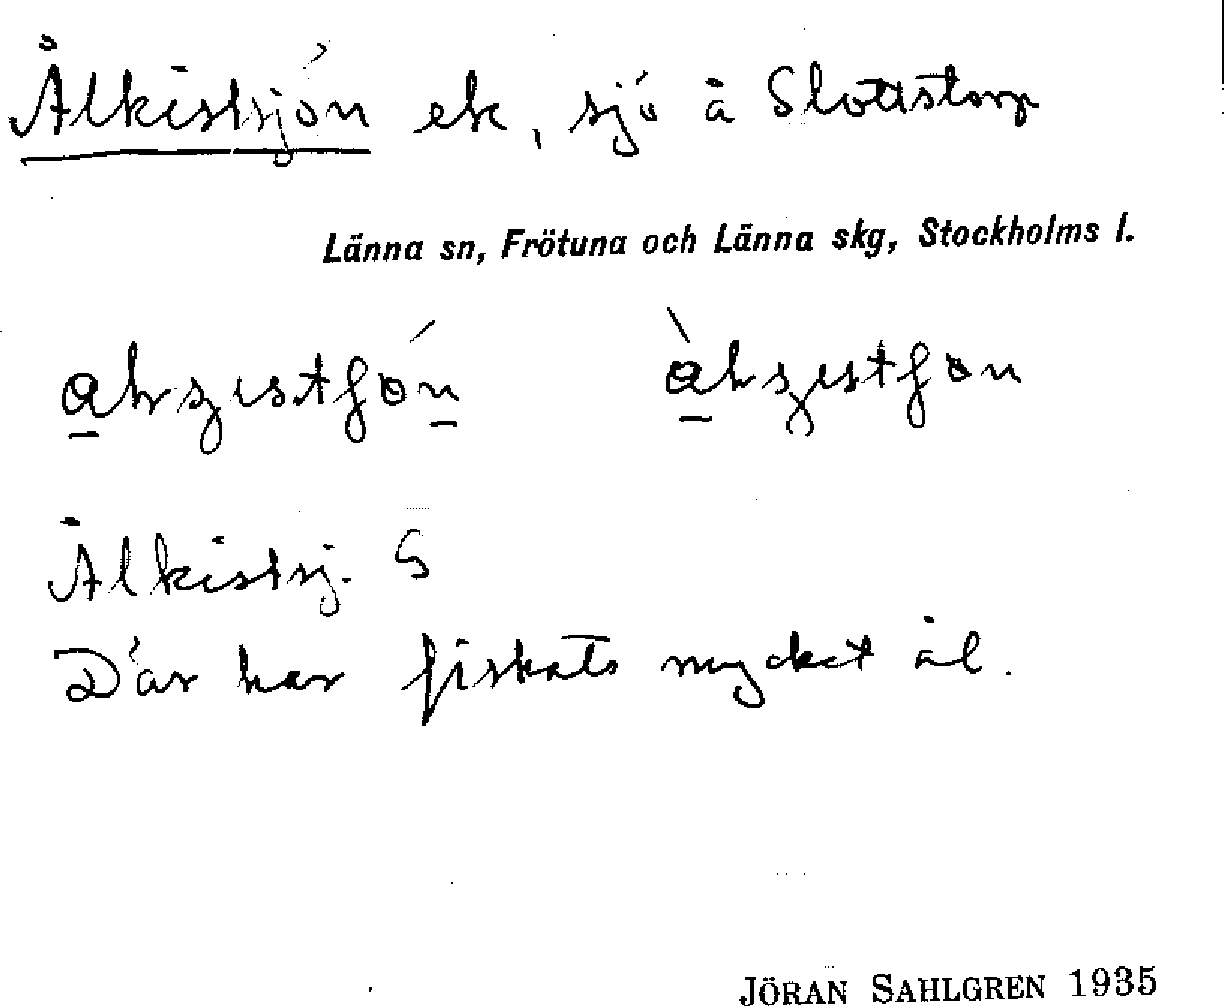 Ålkistsjön ek, sjö å Slottstorp
Länna sn, Frötuna och Länna skg, Stockholms l.
Ålkistsj. G
Där har fiskats mycket ål.
JÖRAN SAHLGREN 1935